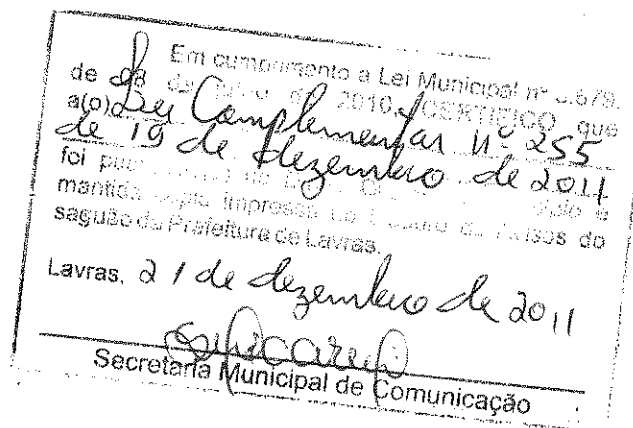 Em cumprimento a Lei Municipal nº 3.679,
de 08 de julho de 2010, CERTIFICO que
a(o) Lei Complementar nº 255
de 19 de dezembro de 2011
foi
mantida cópia impressa no Quadro de Avisos do
saguão da Prefeitura de Lavras.
Lavras, 21 de dezembro de 2011
Secretaria Municipal de Comunicação